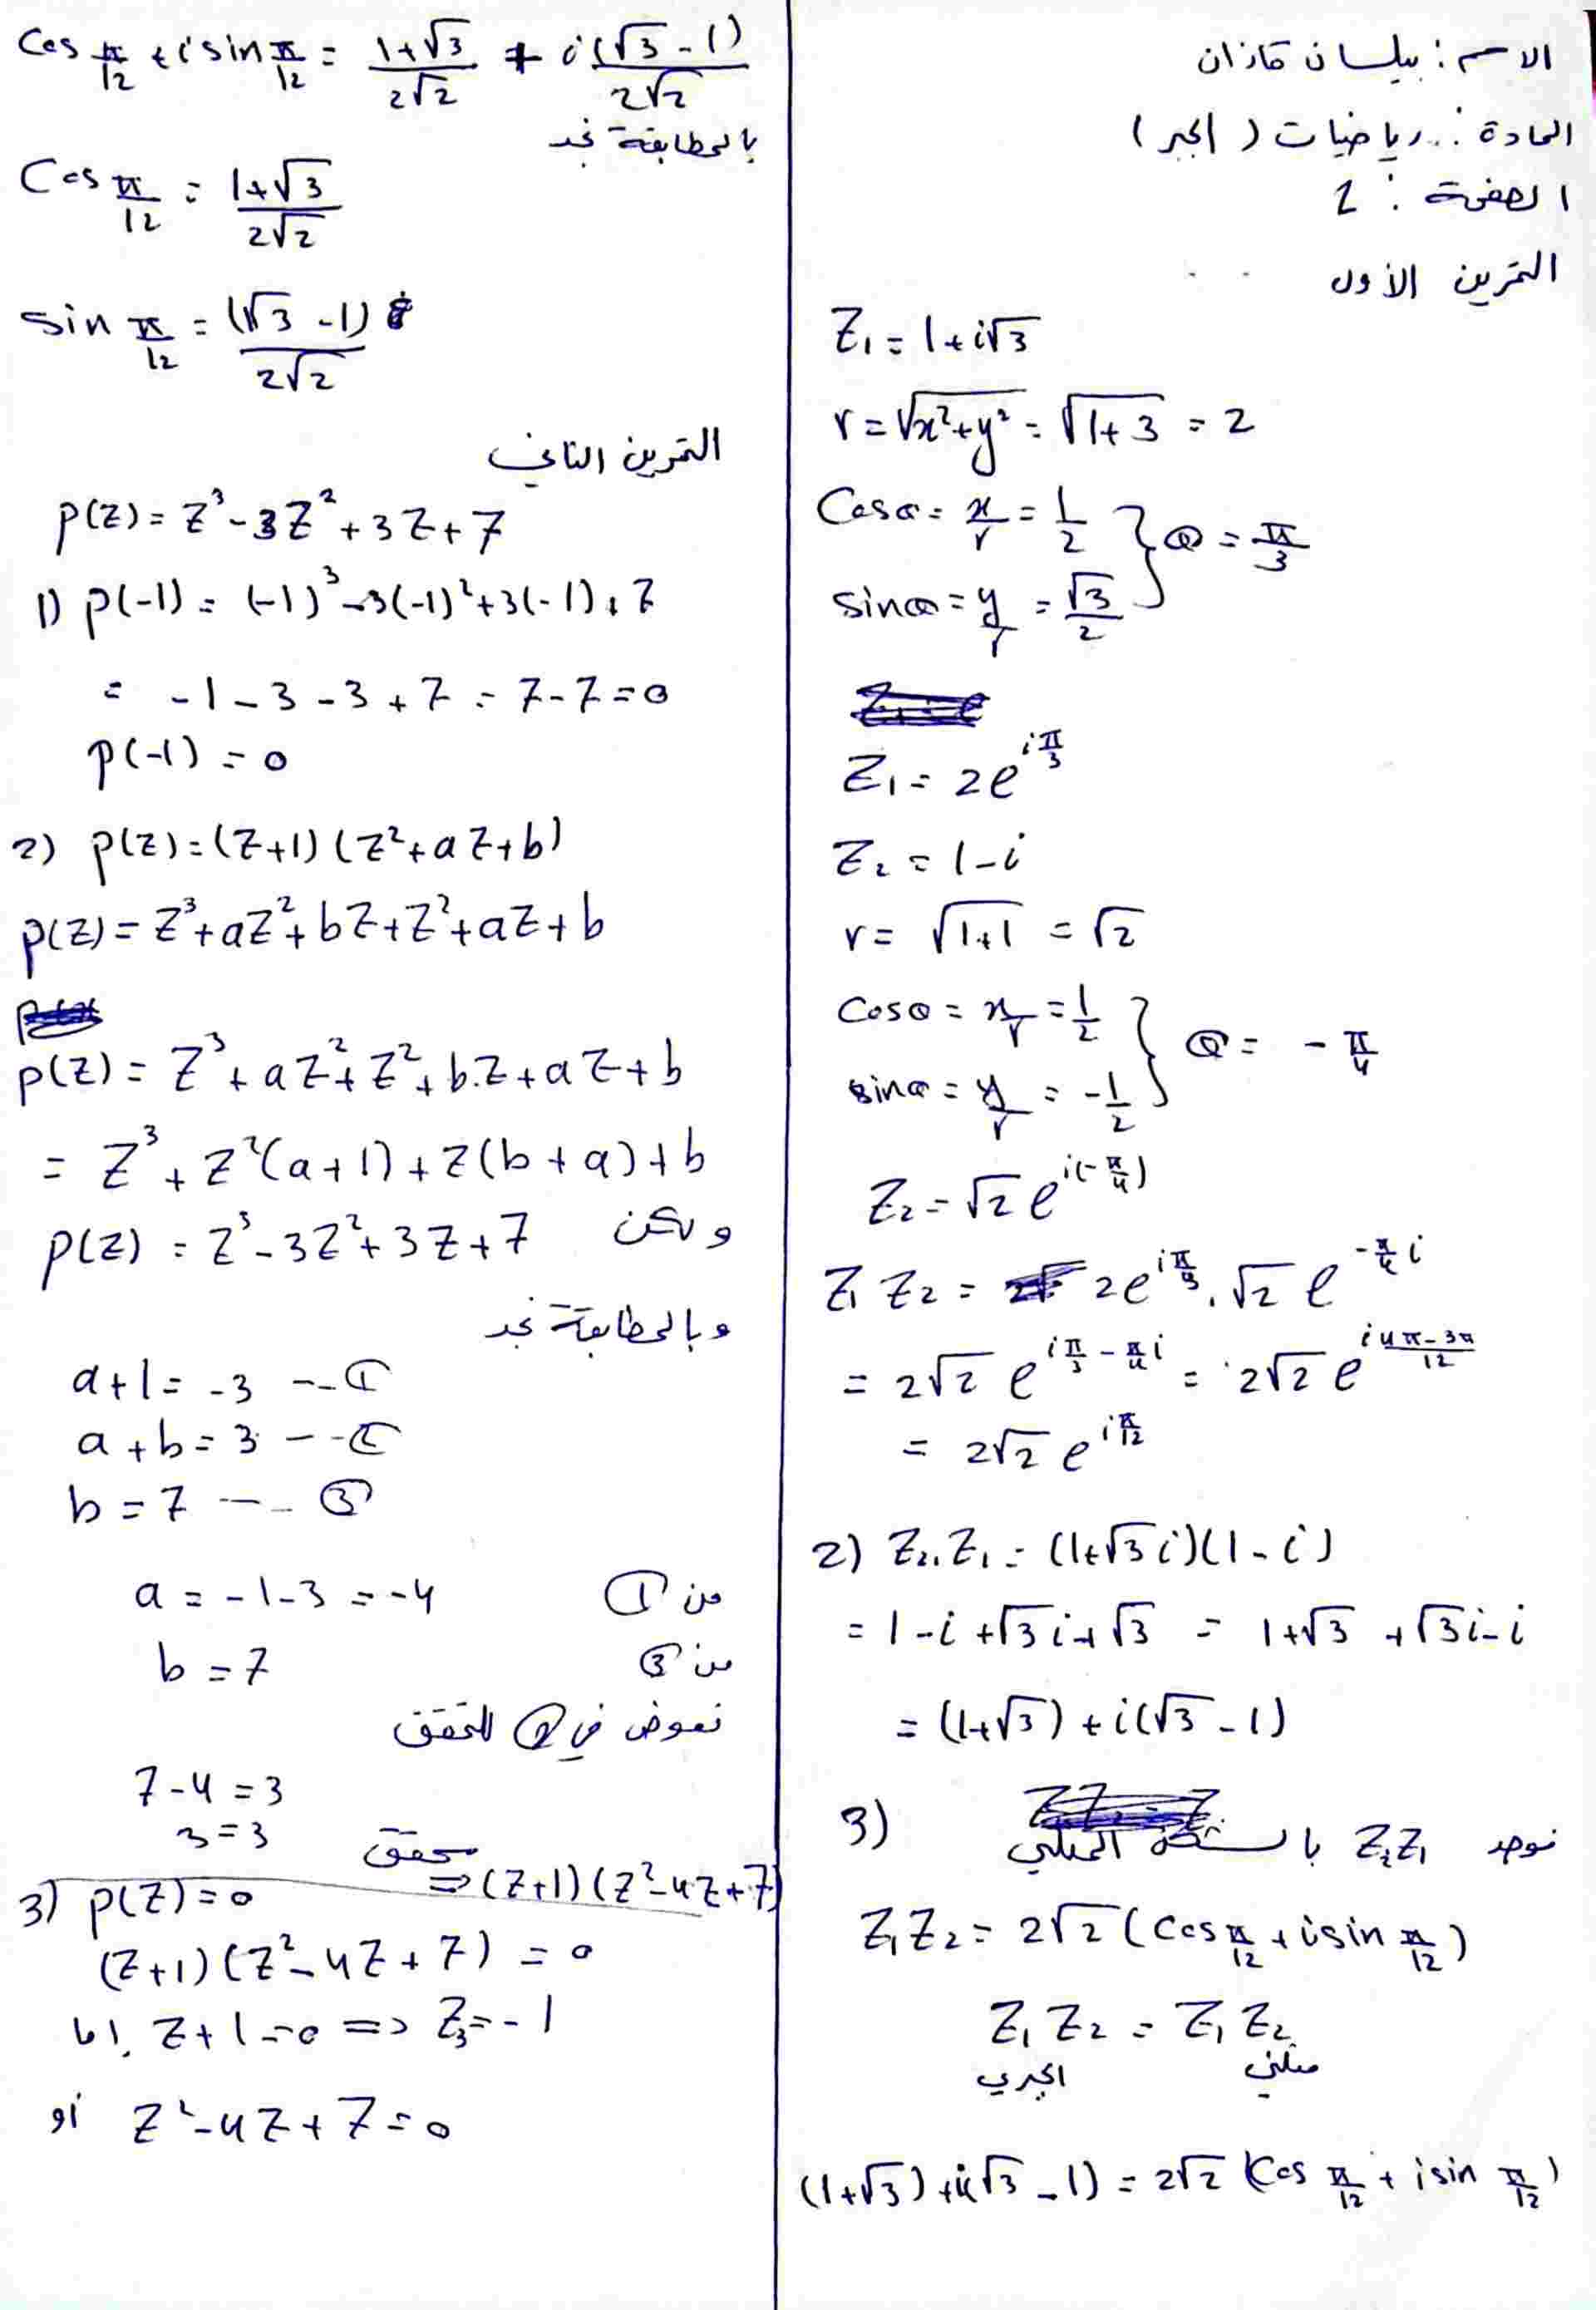 الاسم : بيلسان قازان
المادة : رياضيات (الجبر)
الصفحة : 1
التمرين الأول
Z₁ = 1 + i√3
r = √(x²+y²) = √(1+3) = 2
Cos θ = x/r = 1/2
sin θ = y/r = √3/2 } θ = π/3
Z₁ = 2e^(iπ/3)
Z₂ = 1 - i
r = √(1+1) = √2
Cos θ = x/r = 1/2
sin θ = y/r = -1/2 } θ = - π/4
Z₂ = √2 e^(i(-π/4))
Z₁ Z₂ = 2e^(iπ/3) . √2 e^(-π/4 i)
= 2√2 e^(iπ/3 - π/4 i) = 2√2 e^(i (4π-3π)/12)
= 2√2 e^(iπ/12)
2) Z₂.Z₁ = (1+√3 i)(1-i)
= 1 - i + √3 i + √3 = 1+√3 + √3 i - i
= (1+√3) + i(√3 - 1)
3) نوجد Z₂Z₁ بالشكل المثلثي
Z₁Z₂ = 2√2 (Cos π/12 + i sin π/12)
Z₁ Z₂ = Z₁ Z₂
الجبري مثلثي
(1+√3) + i(√3 - 1) = 2√2 (Cos π/12 + i sin π/12)
Cos π/12 + i sin π/12 = (1+√3)/(2√2) + i(√3 - 1)/(2√2)
بالمطابقة نجد
Cos π/12 = (1+√3)/(2√2)
sin π/12 = (√3 - 1)/(2√2)
التمرين الثاني
p(Z) = Z³ - 3Z² + 3Z + 7
1) p(-1) = (-1)³ - 3(-1)² + 3(-1) + 7
= -1 - 3 - 3 + 7 = 7 - 7 = 0
p(-1) = 0
2) p(Z) = (Z+1)(Z² + aZ + b)
p(Z) = Z³ + aZ² + bZ + Z² + aZ + b
p(Z) = Z³ + aZ² + Z² + b.Z + aZ + b
= Z³ + Z²(a+1) + Z(b+a) + b
ولكن p(Z) = Z³ - 3Z² + 3Z + 7
وبالمطابقة نجد
a+1 = -3 --- ①
a+b = 3 --- ②
b = 7 --- ③
من ① a = -1-3 = -4
من ③ b = 7
نعوض في ② للتحقق
7-4 = 3
3 = 3 محقق
⇒ (Z+1)(Z²-4Z+7)
3) p(Z) = 0
(Z+1)(Z² - 4Z + 7) = 0
إما Z+1 = 0 => Z₃ = -1
أو Z² - 4Z + 7 = 0